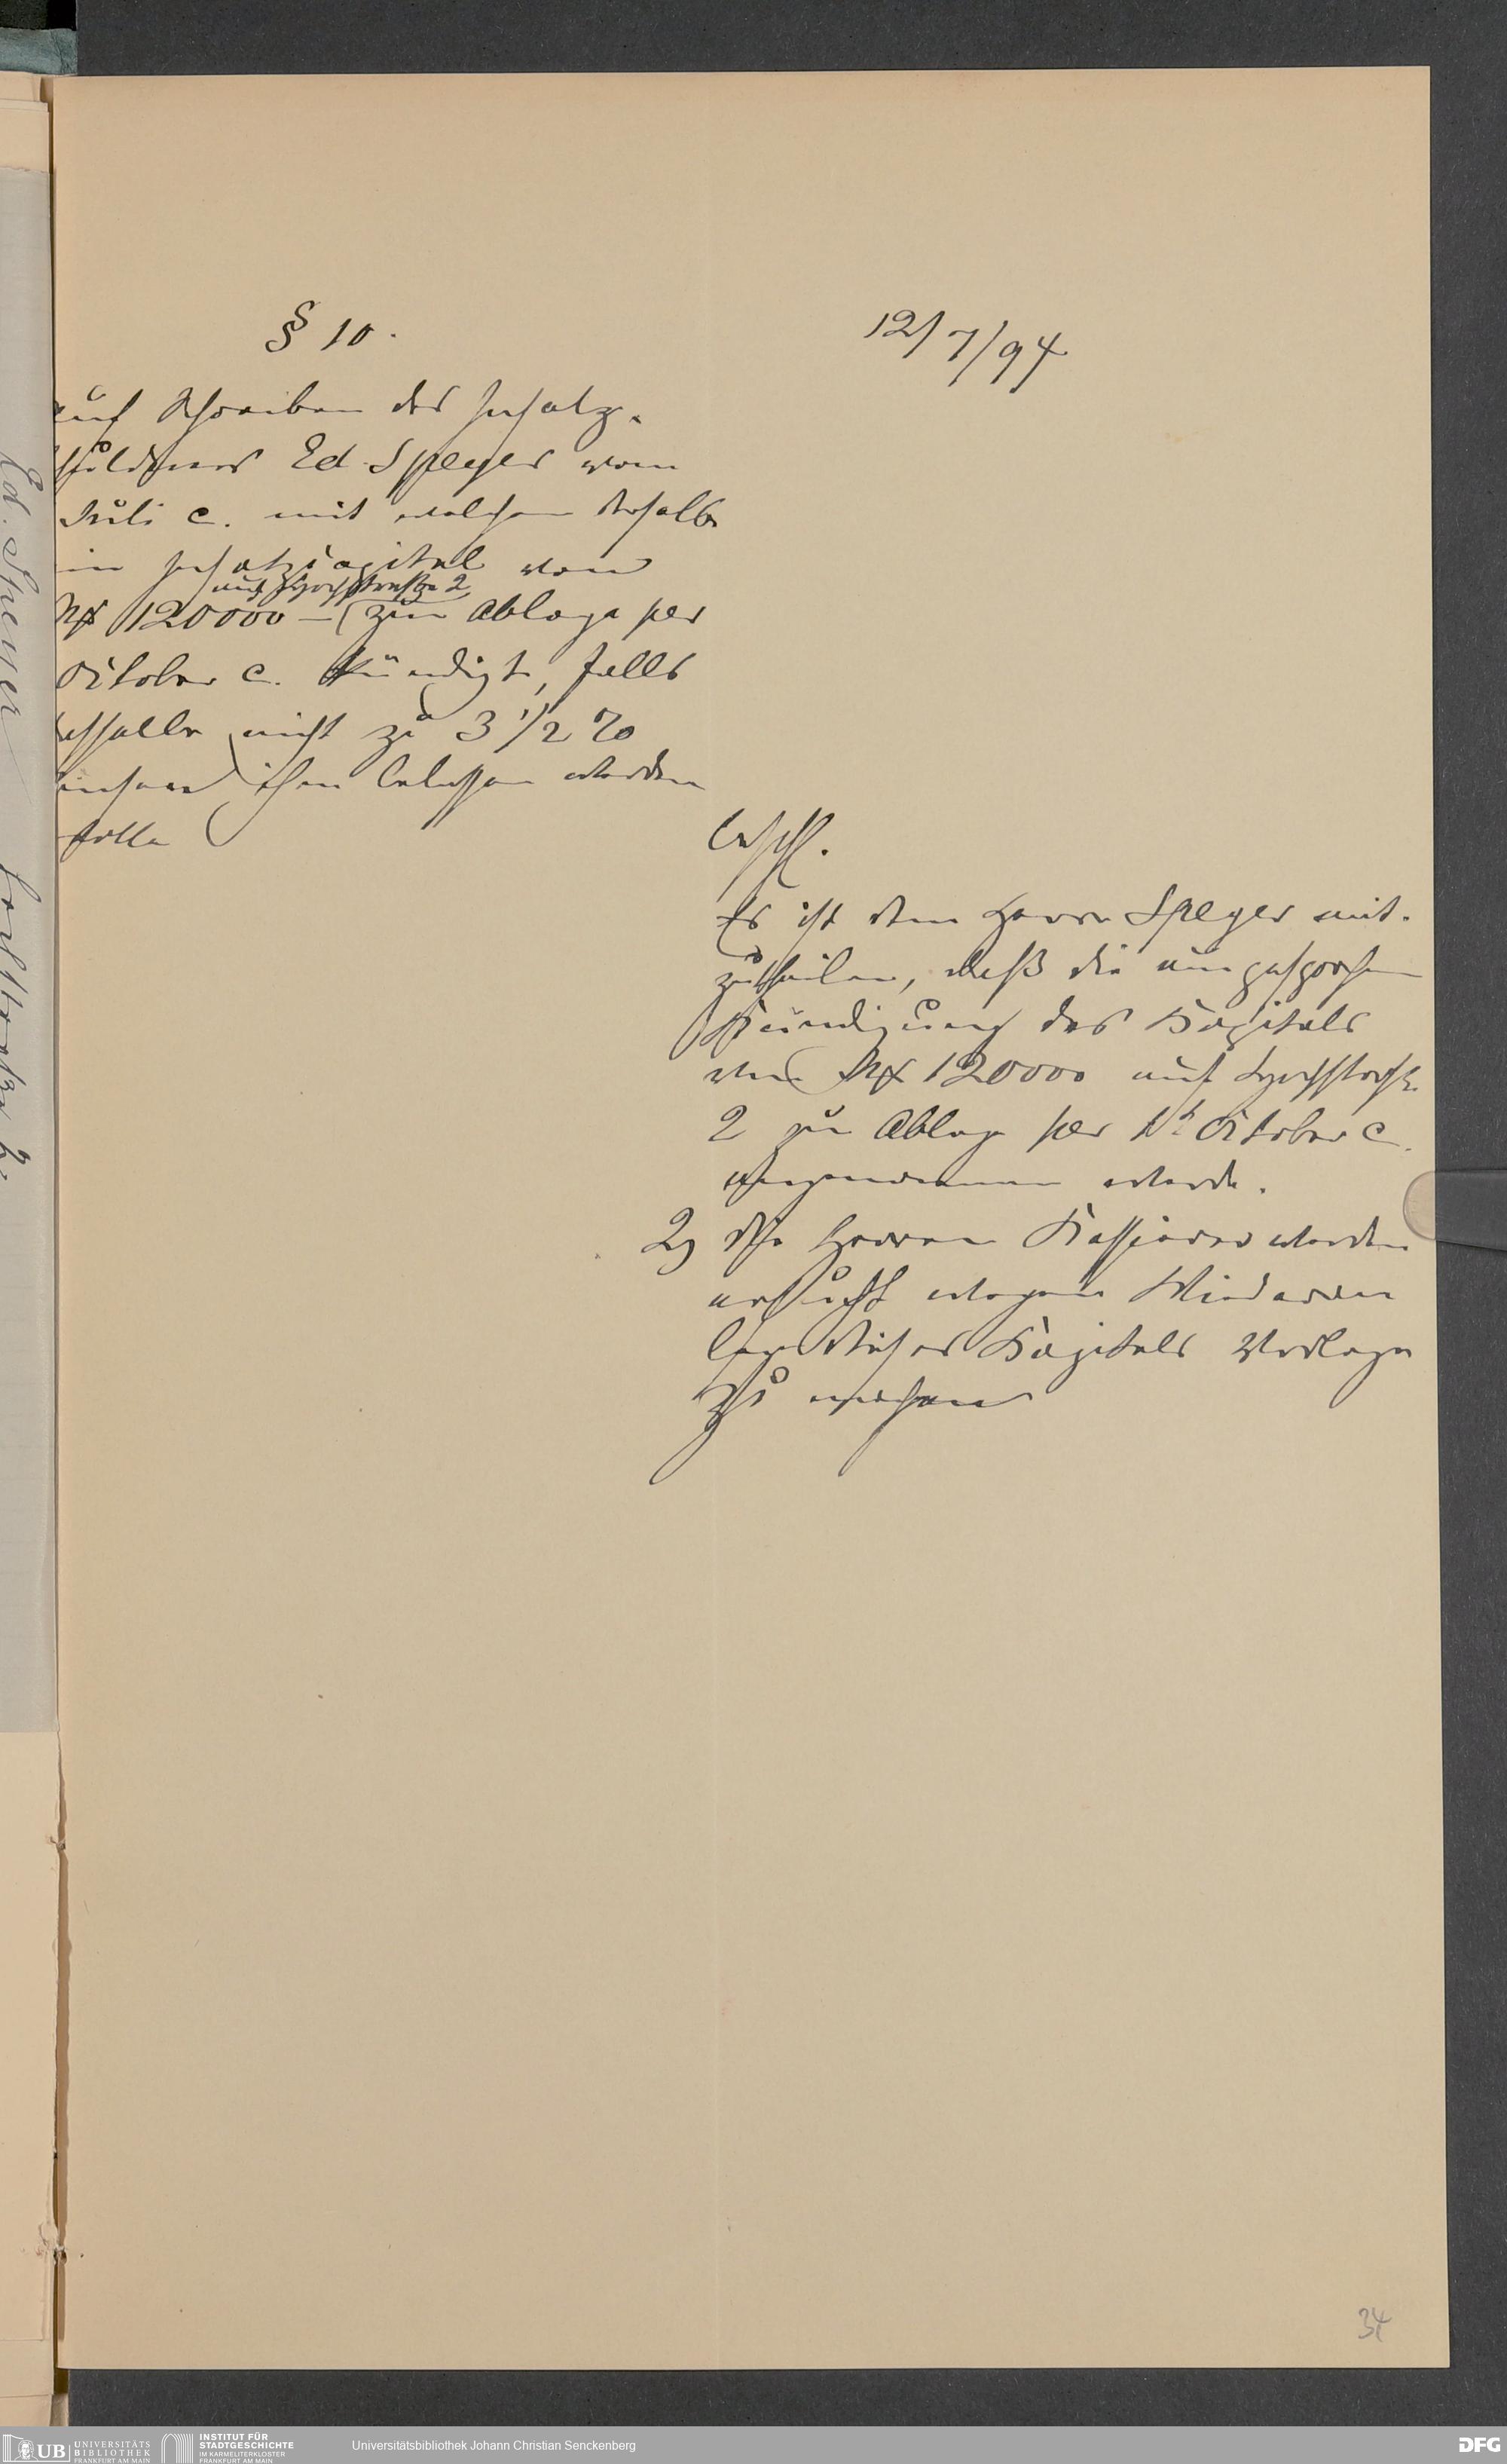 § 10.
12/7/94
auf Schreiben des Insatz-
schuldners Ed. Speyer vom
Juli c. mit welchem derselbe
ein Insatzcapital von
auf Hochstraße 2
M 120000 – zur Ablage per
October c. kündigt, falls
nicht zu 3 1/2 %
ihm belassen werden
solle
beschl.
Es ist dem Herrn Speyer mit-
zutheilen, daß die
Kündigung des Kapitals
von M 120000 auf Hochstraße
2 zur Ablage per 1t October c.
angenommen werde.
2) Die Herren Kassierer werden
ersucht wegen Wiederan
lage dieses Kapitals Vorlage
zu machen
34
Ed. Speyer
UB UNIVERSITÄTS
BIBLIOTHEK
FRANKFURT AM MAIN
INSTITUT FÜR
STADTGESCHICHTE
IM KARMELITERKLOSTER
FRANKFURT AM MAIN
Universitätsbibliothek Johann Christian Senckenberg
DFG